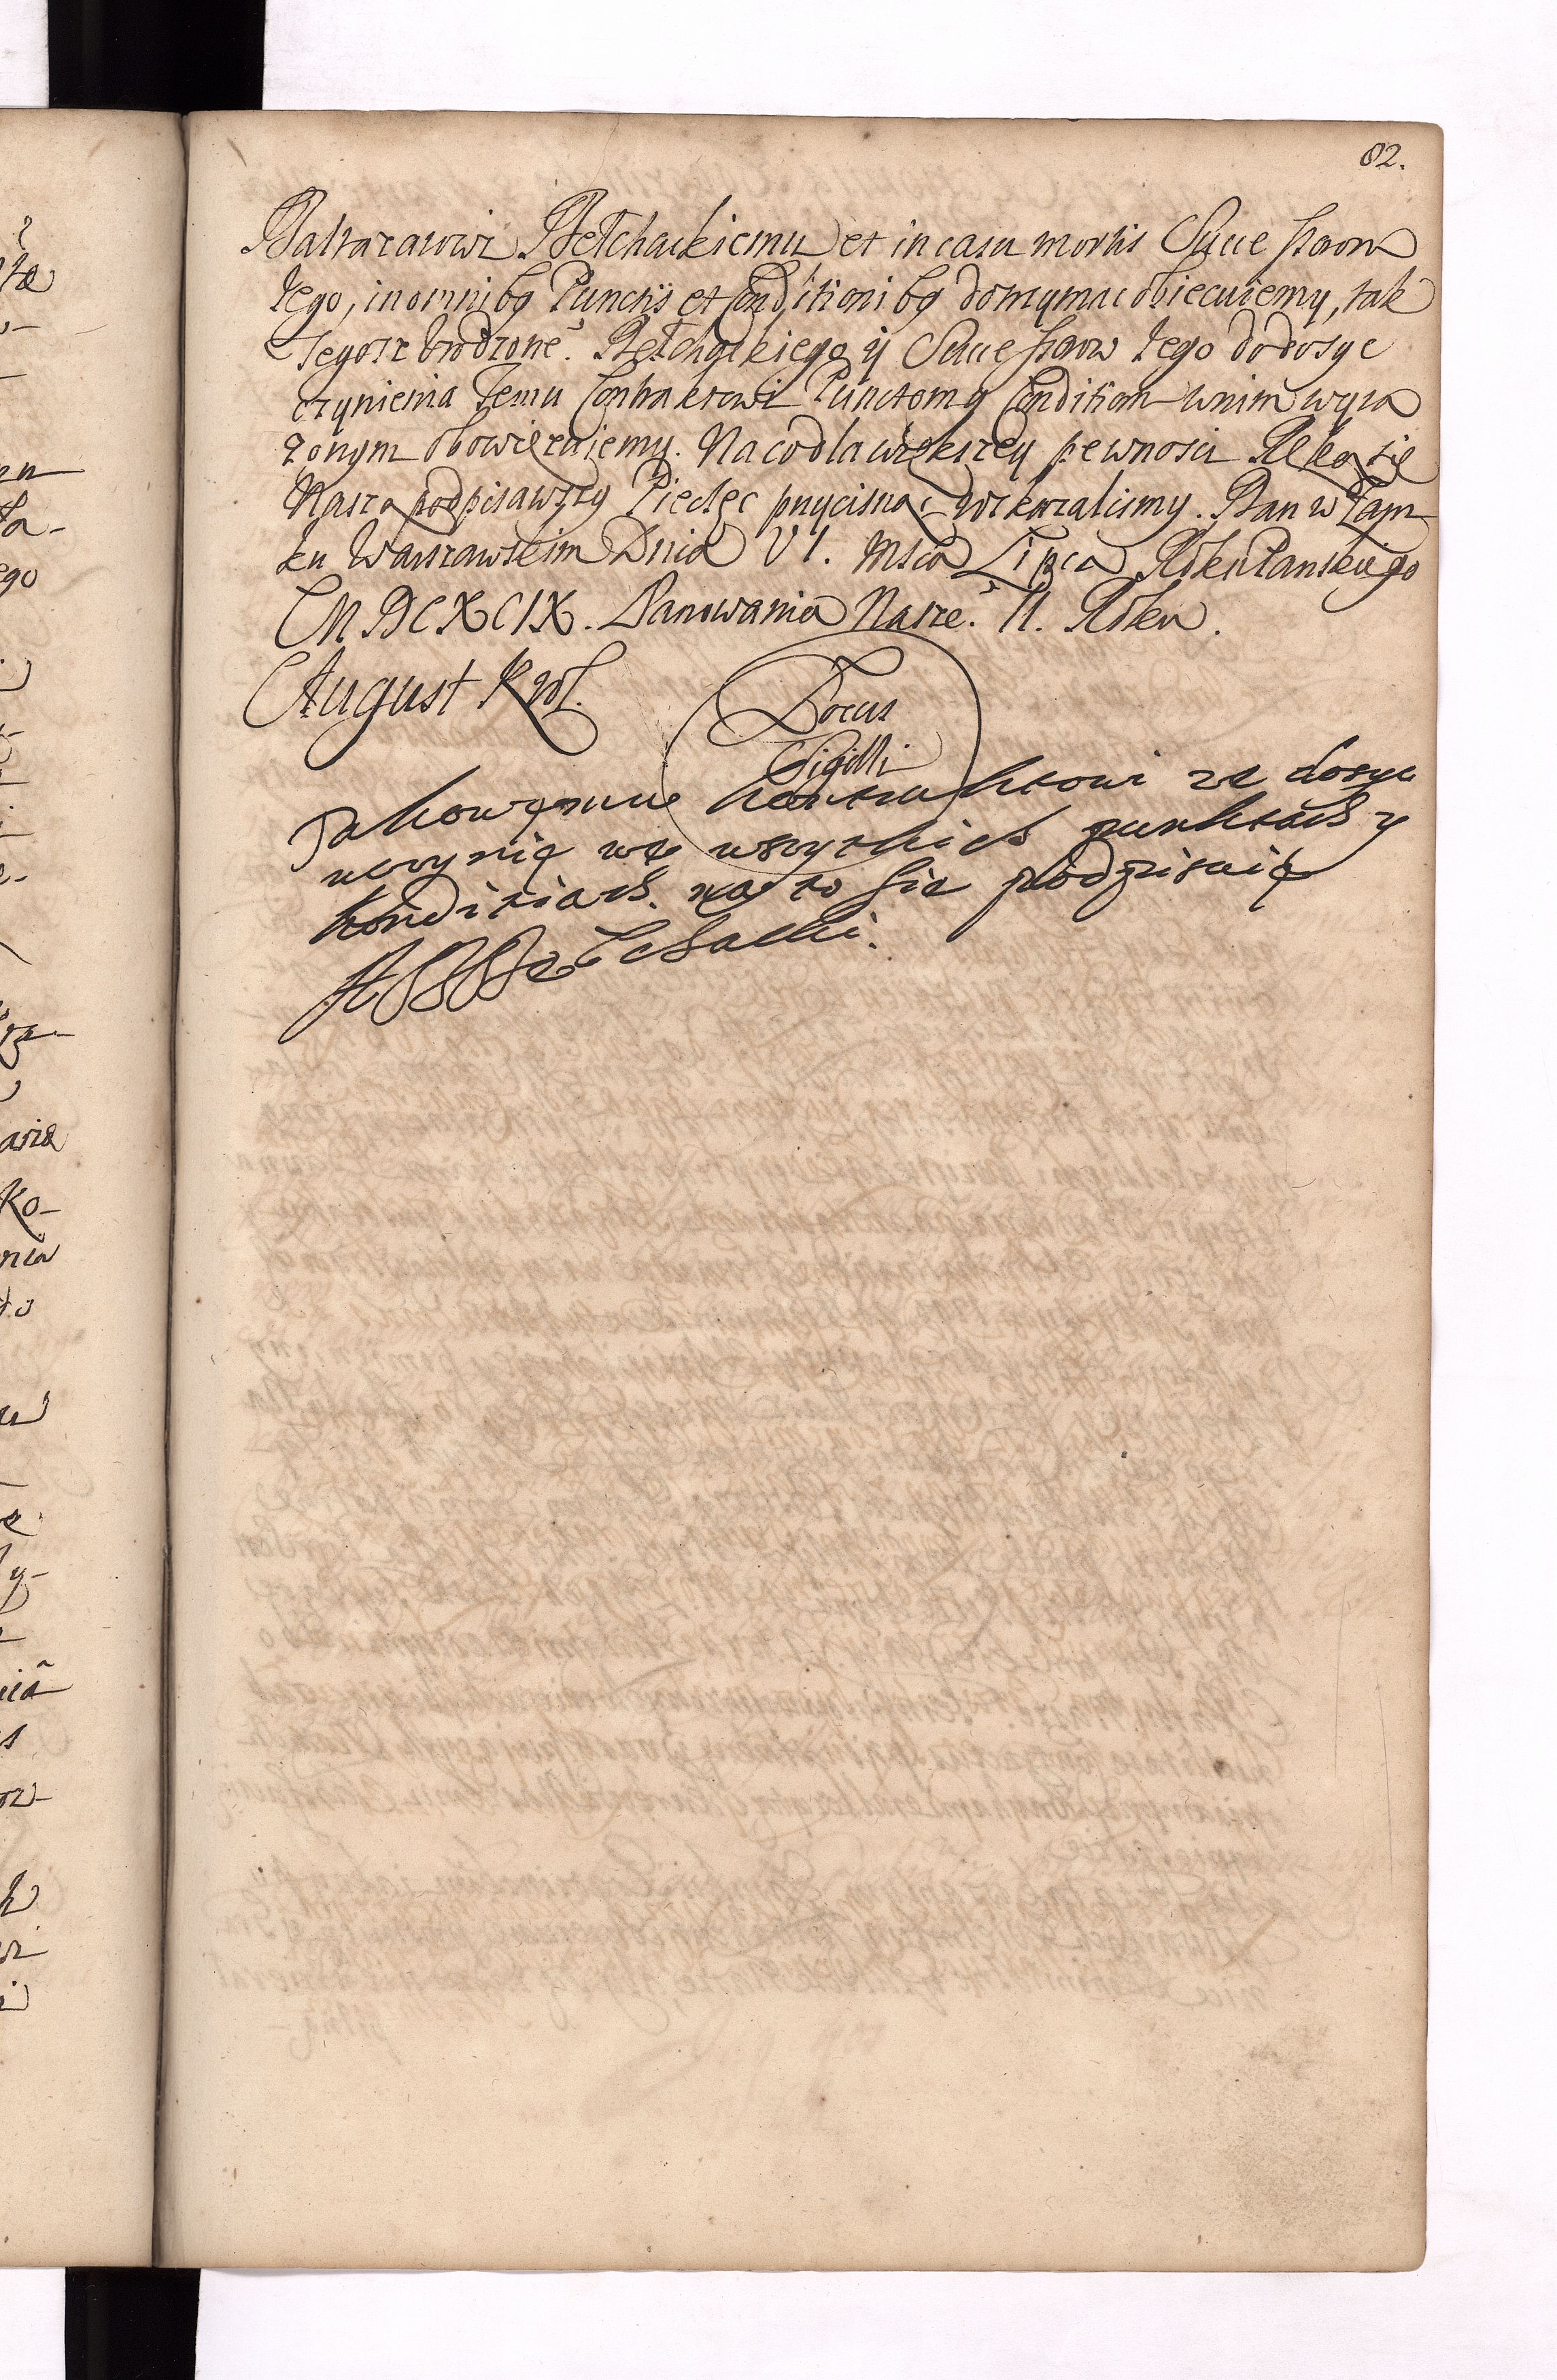 82.
Baltazarowi Bełchackiemu et in casu mortis Successorom
Jego, in omnibq Punctis et Conditionibq dotrzymac obiecuiemy, tak
Tegosz Urodzone. Bełchackiego y Successorow Jego do dosyc
czynienia Temu Contraktowi Punctom y Condition w nim wyra
zonym obowięzuiemy. Na co dla większey pewnosci Ręką się
Naszą podpisawszy Pieclęc przycisnąc rozkazalismy. Dan w Zam
ku Warszawskim Dnia VI. Msca Lipca Roku Panskiego
MDCXCIX. Panowania Nasze. II. Roku.
August Krol.
Locus
Sigilli
Takowemu kontraktowi ze dosyc
uczynię we wszytkich punktach y
konditiach. na to sie podpisuię